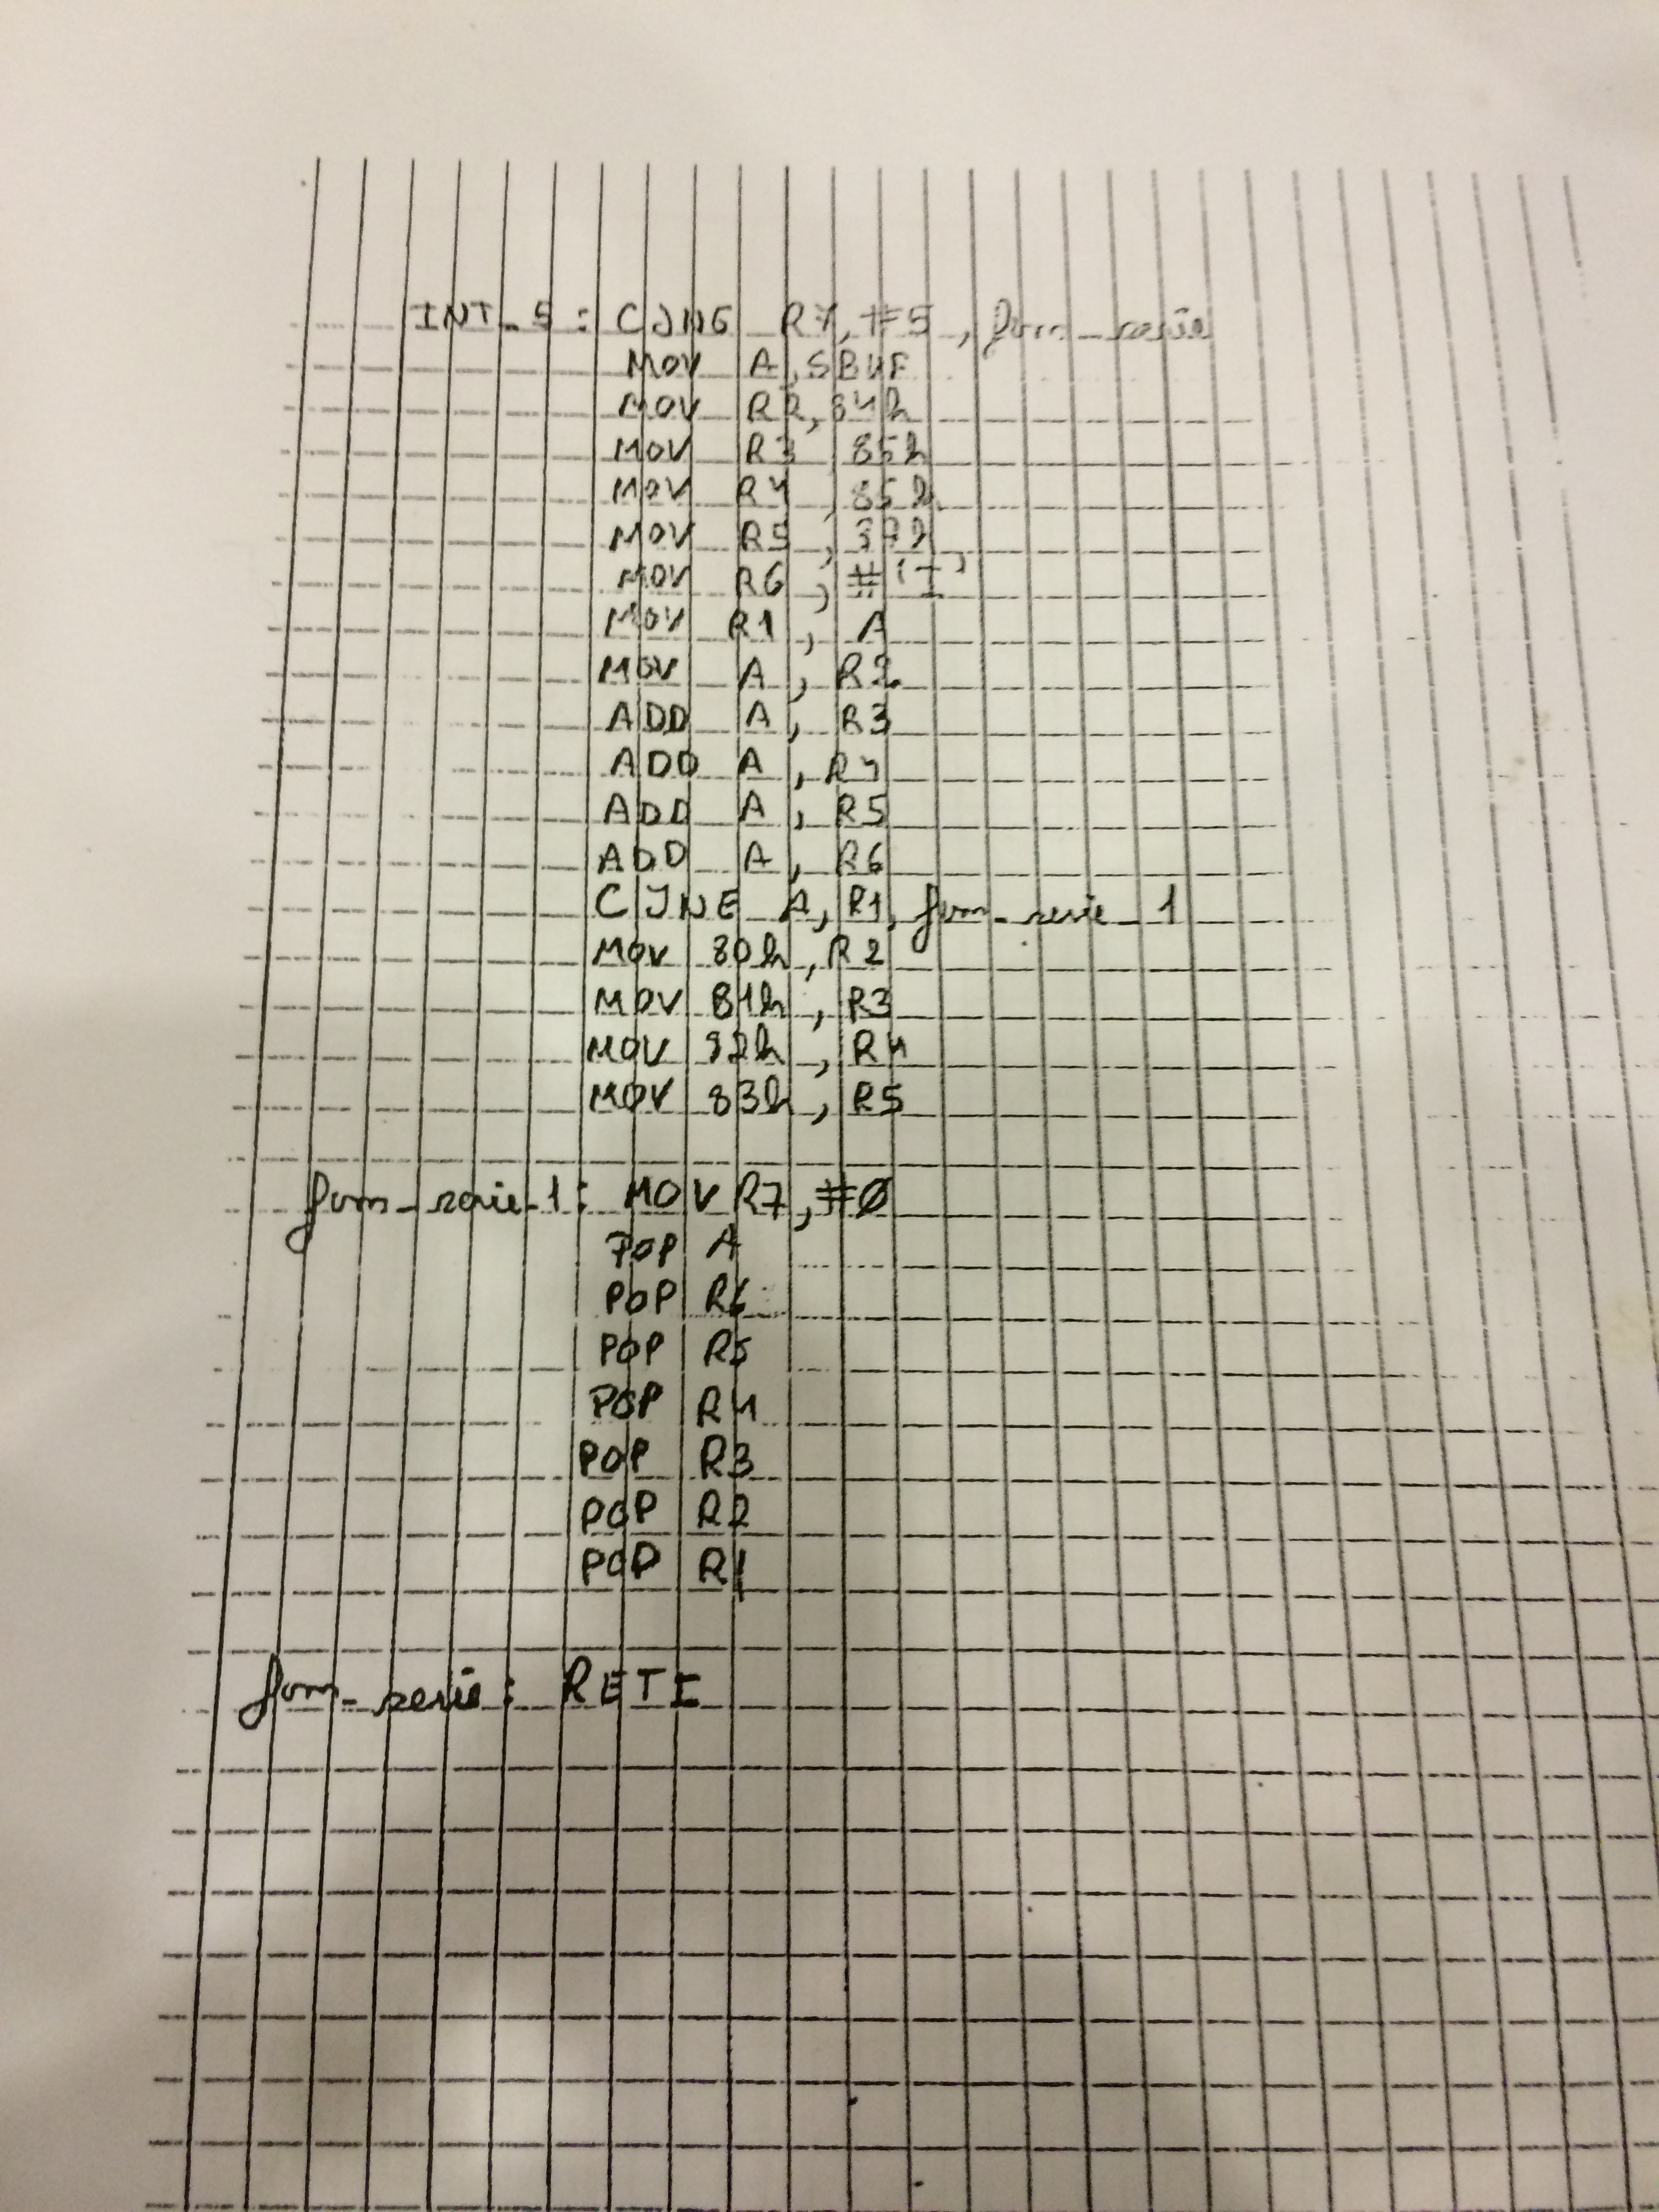 INT_5 : CJNE R7, #5, fim_serie
MOV A, SBUF
MOV R2, 84h
MOV R3, 85h
MOV R4, 85h
MOV R5,
MOV R6, #'I'
MOV R1, A
MOV A, R2
ADD A, R3
ADD A, R4
ADD A, R5
ADD A, R6
CJNE A, R1, fim_serie_1
MOV 80h, R2
MOV 81h, R3
MOV 82h, R4
MOV 83h, R5
fim_serie_1: MOV R7, #Ø
POP A
POP R6
POP R5
POP R4
POP R3
POP R2
POP R1
fim_serie: RETI